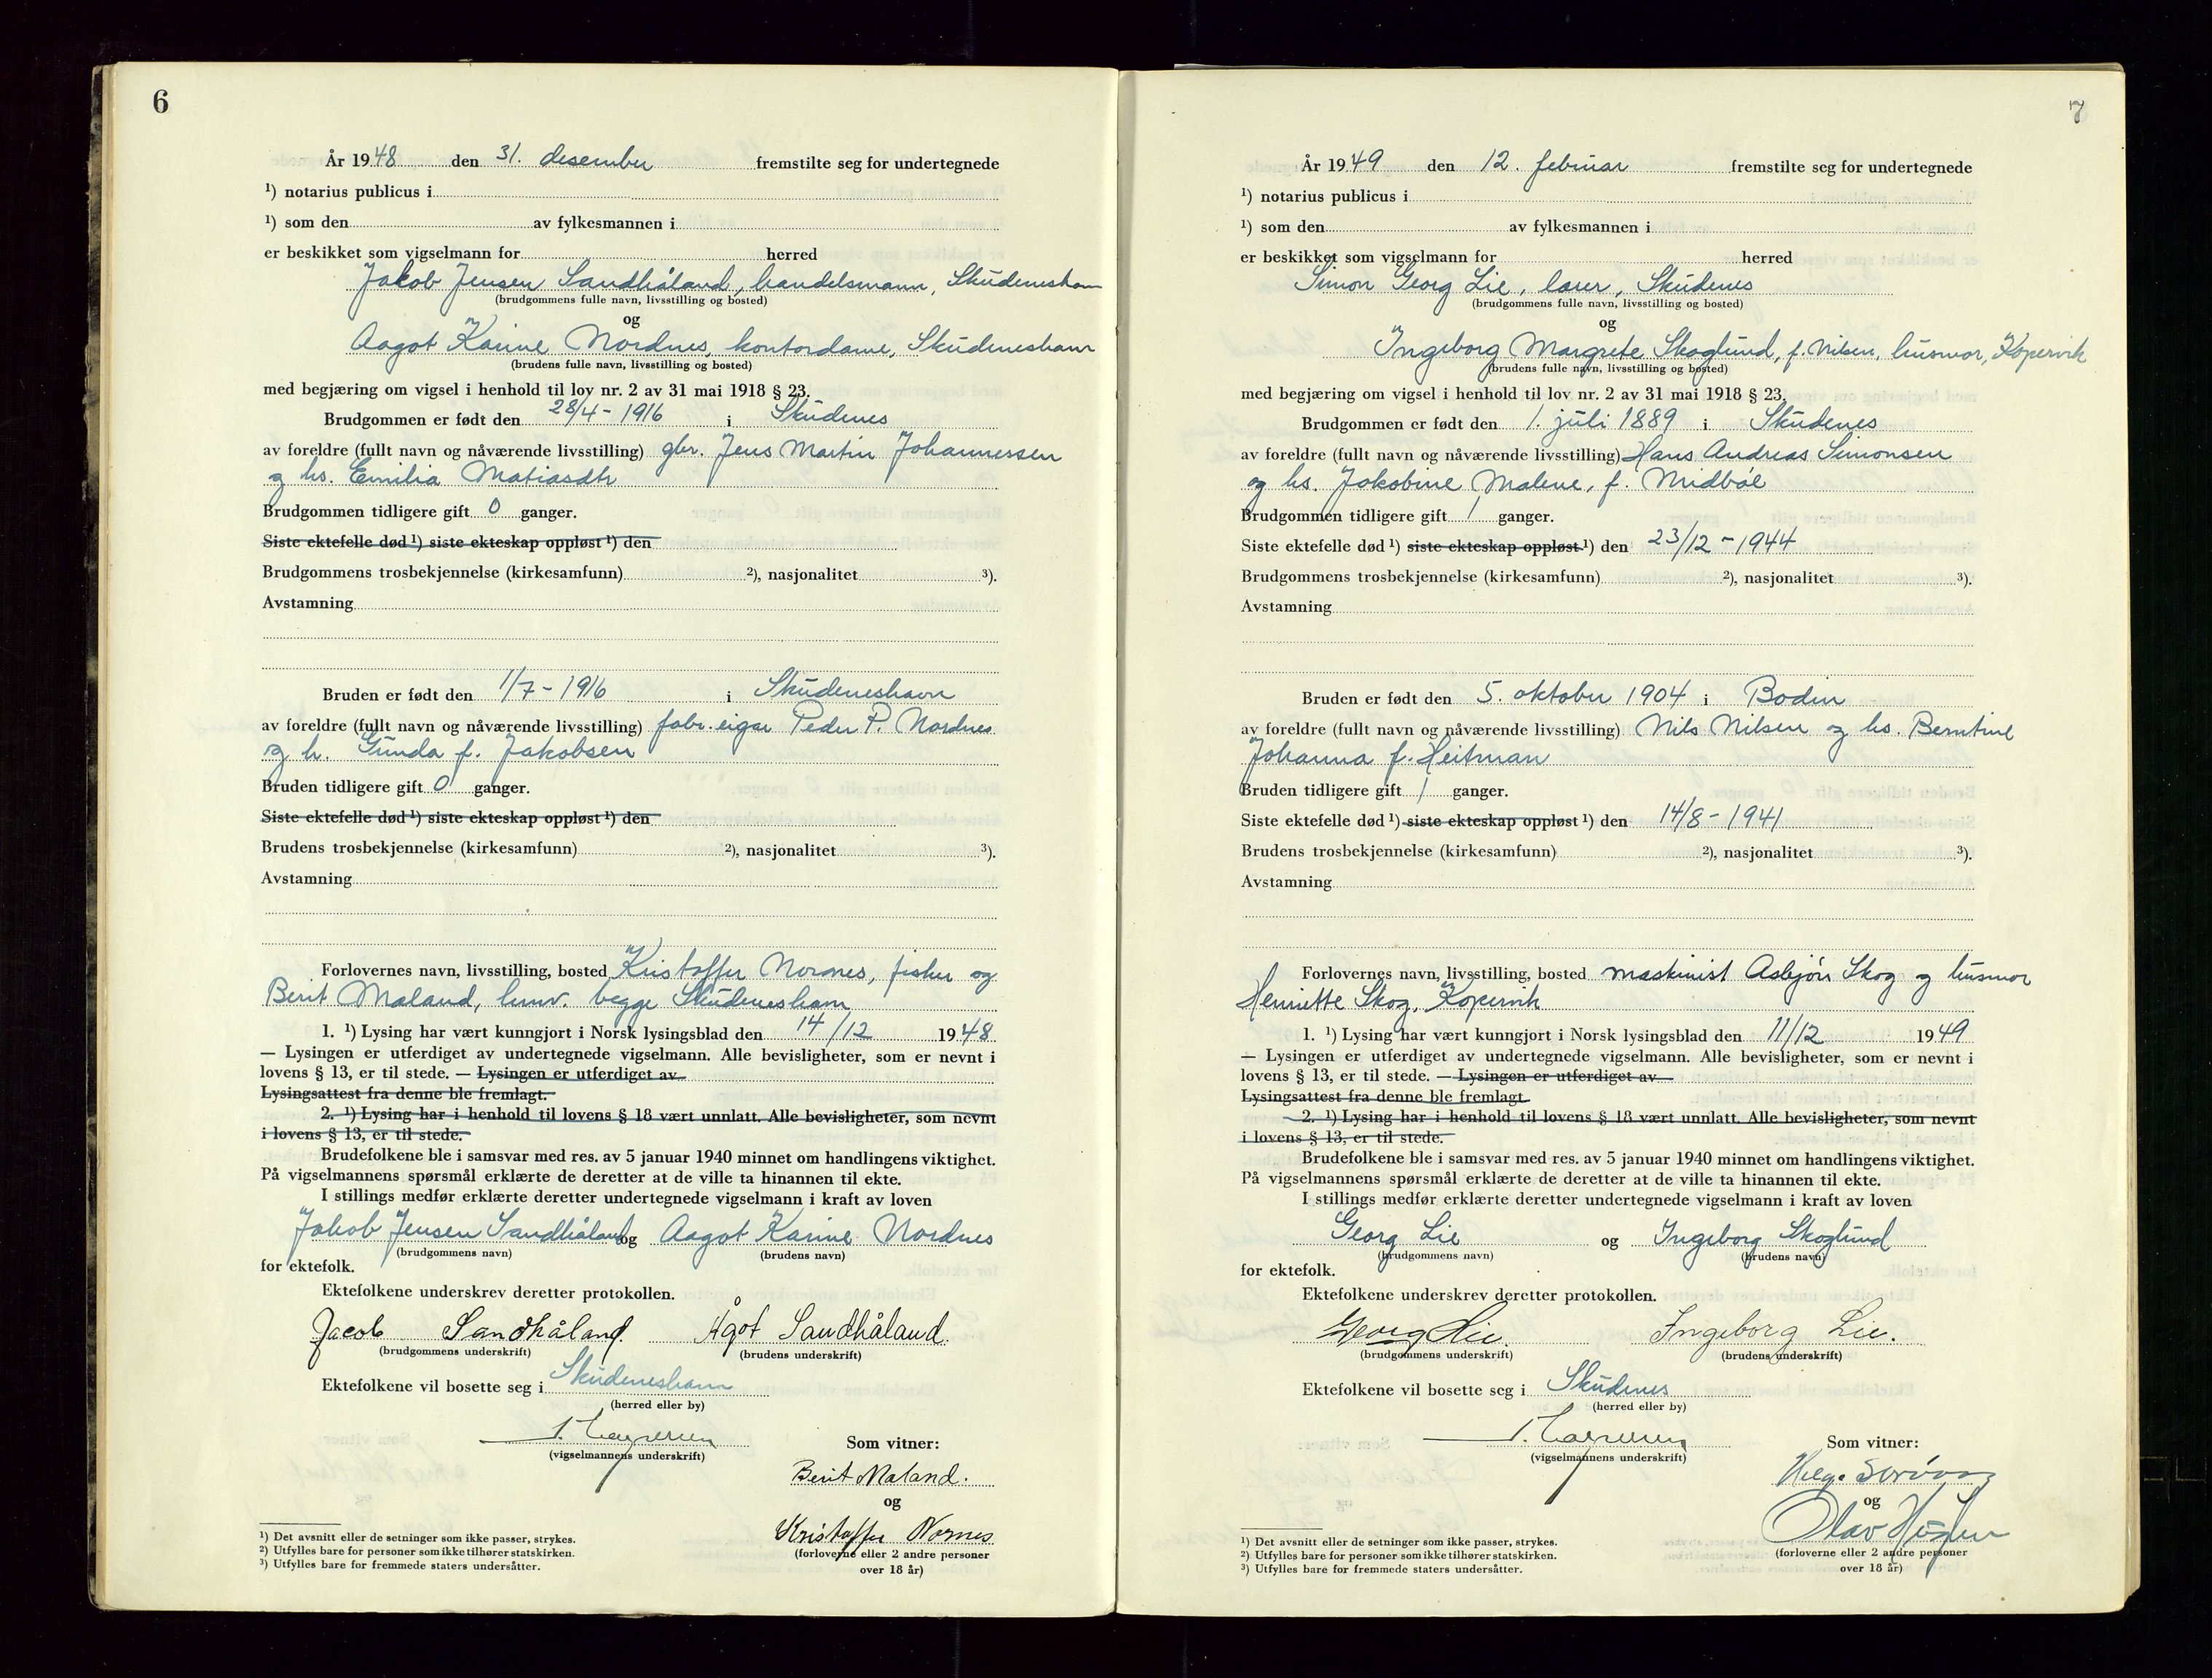 6
År 1948 den 31. desember fremstilte seg for undertegnede
¹) notarius publicus i
¹) som den av fylkesmannen i
er beskikket som vigselmann for herred
Jakob Jensen Sandhåland, handelsmann, Skudeneshavn
(brudgommens fulle navn, livsstilling og bosted)
og
Aagot Karine Nordnes, kontordame, Skudeneshavn
(brudens fulle navn, livsstilling og bosted)
med begjæring om vigsel i henhold til lov nr. 2 av 31 mai 1918 § 23.
Brudgommen er født den 28/4 - 1916 i Skudenes
av foreldre (fullt navn og nåværende livsstilling) gbr. Jens Martin Johannessen
og hs. Emilia Matiasdtr
Brudgommen tidligere gift 0 ganger.
Siste ektefelle død ¹) siste ekteskap oppløst ¹) den
Brudgommens trosbekjennelse (kirkesamfunn) ²), nasjonalitet ³).
Avstamning
Bruden er født den 1/7 - 1916 i Skudeneshavn
av foreldre (fullt navn og nåværende livsstilling) fabr. eigar Peder P. Nordnes
og h. Gunda f. Jakobsen
Bruden tidligere gift 0 ganger.
Siste ektefelle død ¹) siste ekteskap oppløst ¹) den
Brudens trosbekjennelse (kirkesamfunn) ²), nasjonalitet ³).
Avstamning
Forlovernes navn, livsstilling, bosted Kristoffer Nornes, fisher og
Berit Maland, begge Skudeneshavn
1. ¹) Lysing har vært kunngjort i Norsk lysingsblad den 14/12 1948
— Lysingen er utferdiget av undertegnede vigselmann. Alle bevisligheter, som er nevnt i
lovens § 13, er til stede. — Lysingen er utferdiget av
Lysingsattest fra denne ble fremlagt.
2. ¹) Lysing har i henhold til lovens § 18 vært unnlatt. Alle bevisligheter, som nevnt
i lovens § 13, er til stede.
Brudefolkene ble i samsvar med res. av 5 januar 1940 minnet om handlingens viktighet.
På vigselmannens spørsmål erklærte de deretter at de ville ta hinannen til ekte.
I stillings medfør erklærte deretter undertegnede vigselmann i kraft av loven
Jakob Jensen Sandhåland og Aagot Karine Nordnes
(brudgommens navn) (brudens navn)
for ektefolk.
Ektefolkene underskrev deretter protokollen.
Jacob Sandhåland. Ågot Sandhåland.
(brudgommens underskrift) (brudens underskrift)
Ektefolkene vil bosette seg i Skudeneshavn
(herred eller by)
(vigselmannens underskrift)
Som vitner:
Berit Maland.
og
Kristoffer Nornes
(forloverne eller 2 andre personer
over 18 år)
¹) Det avsnitt eller de setninger som ikke passer, strykes.
²) Utfylles bare for personer som ikke tilhører statskirken.
³) Utfylles bare for fremmede staters undersåtter.
7
År 1949 den 12. februar fremstilte seg for undertegnede
¹) notarius publicus i
¹) som den av fylkesmannen i
er beskikket som vigselmann for herred
Simon Georg Lie, lærer, Skudenes
(brudgommens fulle navn, livsstilling og bosted)
og
Ingeborg Margrete Skoglund, f. Nilsen, husmor, Kopervik
(brudens fulle navn, livsstilling og bosted)
med begjæring om vigsel i henhold til lov nr. 2 av 31 mai 1918 § 23.
Brudgommen er født den 1. juli 1889 i Skudenes
av foreldre (fullt navn og nåværende livsstilling) Hans Andreas Simonsen
og hs. Jakobine Malene, f. Midbøe
Brudgommen tidligere gift 1 ganger.
Siste ektefelle død ¹) siste ekteskap oppløst ¹) den 23/12 - 1944
Brudgommens trosbekjennelse (kirkesamfunn) ²), nasjonalitet ³).
Avstamning
Bruden er født den 5. oktober 1904 i Bodin
av foreldre (fullt navn og nåværende livsstilling) Nils Nilsen og hs. Berntine
Johanna f. Heitman
Bruden tidligere gift 1 ganger.
Siste ektefelle død ¹) siste ekteskap oppløst ¹) den 14/8 - 1941
Brudens trosbekjennelse (kirkesamfunn) ²), nasjonalitet ³).
Avstamning
Forlovernes navn, livsstilling, bosted maskinist Asbjørn Skog og husmor
Henriette Skog, Kopervik
1. ¹) Lysing har vært kunngjort i Norsk lysingsblad den 11/12 1949
— Lysingen er utferdiget av undertegnede vigselmann. Alle bevisligheter, som er nevnt i
lovens § 13, er til stede. — Lysingen er utferdiget av
Lysingsattest fra denne ble fremlagt
2. ¹) Lysing har i henhold til lovens § 18 vært unnlatt. Alle bevisligheter, som nevnt
i lovens § 13, er til stede.
Brudefolkene ble i samsvar med res. av 5 januar 1940 minnet om handlingens viktighet.
På vigselmannens spørsmål erklærte de deretter at de ville ta hinannen til ekte.
I stillings medfør erklærte deretter undertegnede vigselmann i kraft av loven
Georg Lie og Ingeborg Skoglund
(brudgommens navn) (brudens navn)
for ektefolk.
Ektefolkene underskrev deretter protokollen.
Georg Lie Ingeborg Lie.
(brudgommens underskrift) (brudens underskrift)
Ektefolkene vil bosette seg i Skudenes
(herred eller by)
(vigselmannens underskrift)
Som vitner:
Helge
og
Olav
(forloverne eller 2 andre personer
over 18 år)
¹) Det avsnitt eller de setninger som ikke passer, strykes.
²) Utfylles bare for personer som ikke tilhører statskirken.
³) Utfylles bare for fremmede staters undersåtter.